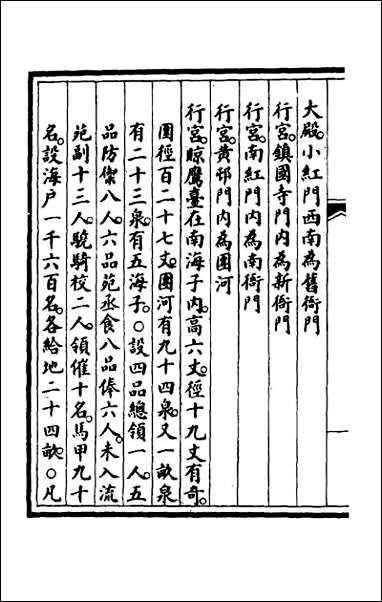 大殿。小紅門西南為舊衙門
行宮。鎮國寺門内為新衙門
行宮。南紅門内為南衙門
行宮。黄邨門内為團河
行宮。晾鷹臺在南海子内。高六丈。徑十九丈有奇。
圍徑百二十七丈。團河有九十四泉。又一畝泉
有二十三泉。有五海子。○設四品總領一人。五
品防禦八人。六品苑丞食八品俸六人。未入流
苑副十三人。驍騎校二人。領催十名。馬甲九十
名。設海户一千六百名。各給地二十四畝。○凡